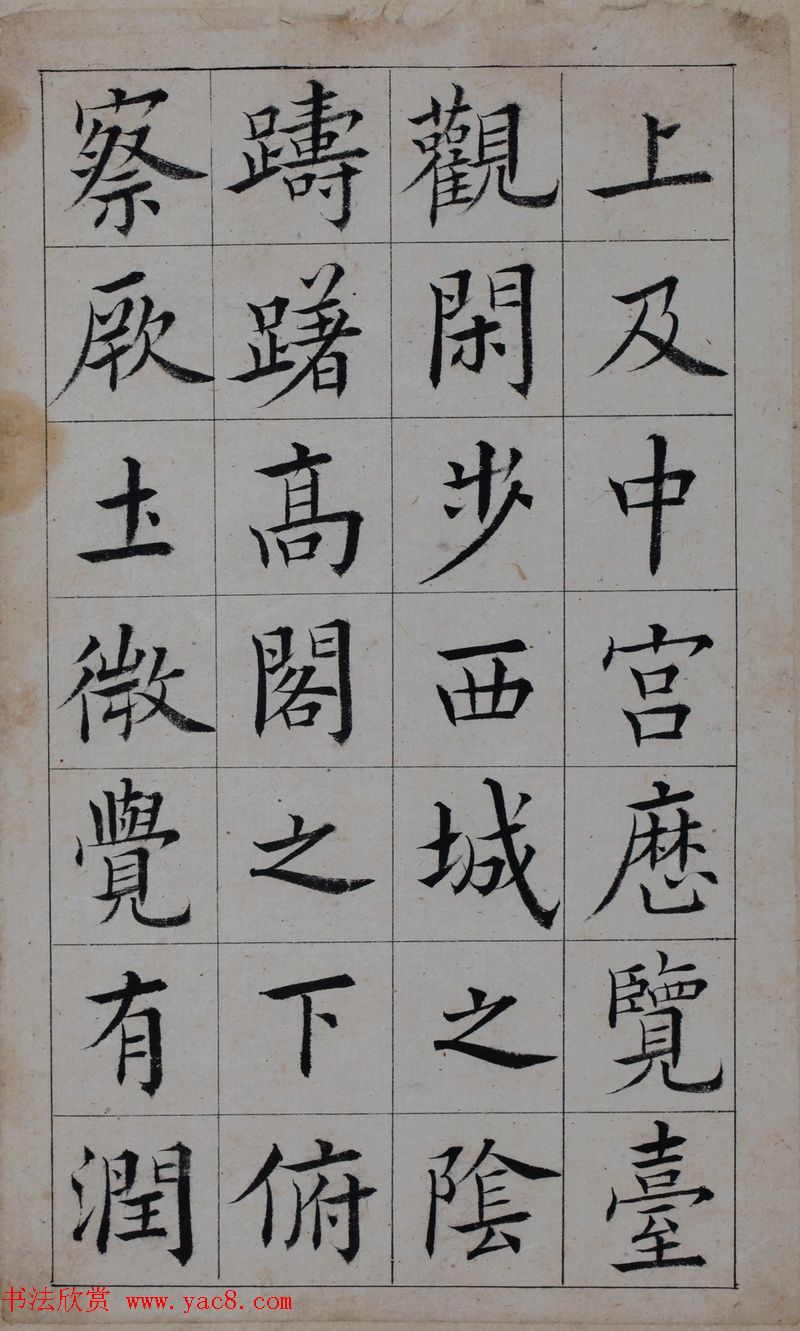 上及中宮歷覽臺
觀閑步西城之陰
躊躇高閣之下俯
察厥土微覺有潤
书法欣赏 www.yac8.com